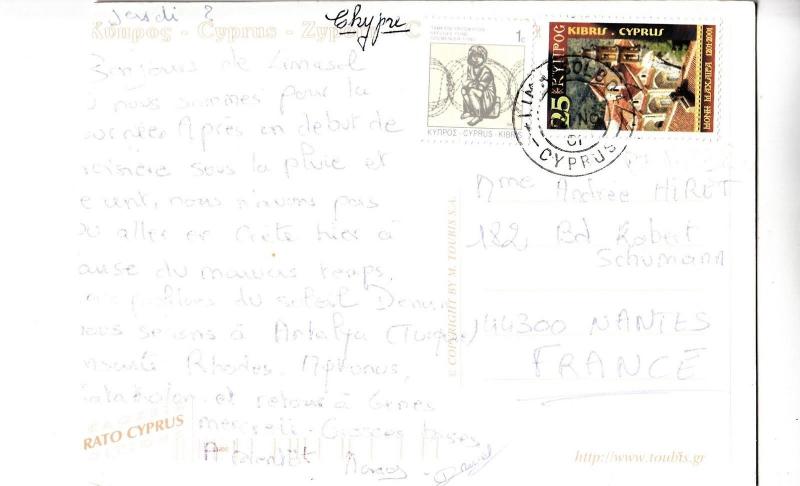 Jeudi 8
Chypre
Κύπρος - Cyprus - Zypern
Bonjours de Limassol
nous sommes pour la
journée. Après un début de
croisière sous la pluie et
le vent, nous n'avons pas
pu aller en Crète hier à
cause du mauvais temps.
du soleil. Demain
nous serons à Antalya (Turquie)
ensuite Rhodes, Mykonos,
et retour à Gênes
mercredi. Grosses bises
A bientôt
1c
ΚΥΠΡΟΣ - CYPRUS - KIBRIS
KIBRIS - CYPRUS
ΚΥΠΡΟΣ
25
ΜΟΝΗ ΜΑΧΑΙΡΑ 1201-2001
CYPRUS
Mme Andrée HIRET
182 Bd Robert
Schumann
44300 NANTES
FRANCE
© COPYRIGHT BY M. TOUBIS S.A.
RATO CYPRUS
http://www.toubis.gr